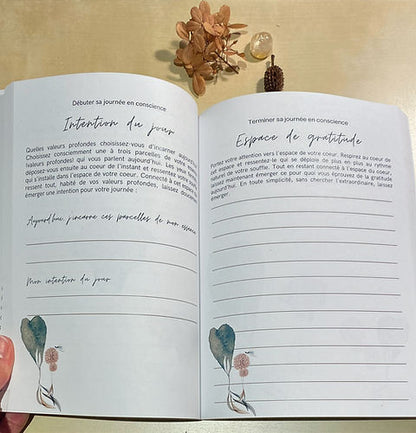 Débuter sa journée en conscience
Intention du jour
Quelles valeurs profondes choisissez-vous d'incarner aujourd'hui
Choisissez consciemment une à trois parcelles de votre
valeurs profondes) qui vous parlent aujourd'hui. Les yeux
déposez-vous ensuite au coeur de l'instant et ressentez votre
qui s'installe dans l'espace de votre coeur. Connecté à cet espace
ressent tout, habité de vos valeurs profondes, laissez doucement
émerger une intention pour votre journée :
Aujourd'hui, j'incarne ces parcelles de mon essence
Mon intention du jour
Terminer sa journée en conscience
Espace de gratitude
Portez votre attention vers l'espace de votre coeur. Respirez au coeur de
cet espace et ressentez-le qui se déploie de plus en plus au rythme
naturel de votre souffle. Tout en restant connecté à l'espace du coeur,
laissez maintenant émerger ce pour quoi vous éprouvez de la gratitude
aujourd'hui. En toute simplicité, sans chercher l'extraordinaire, laissez
émerger.